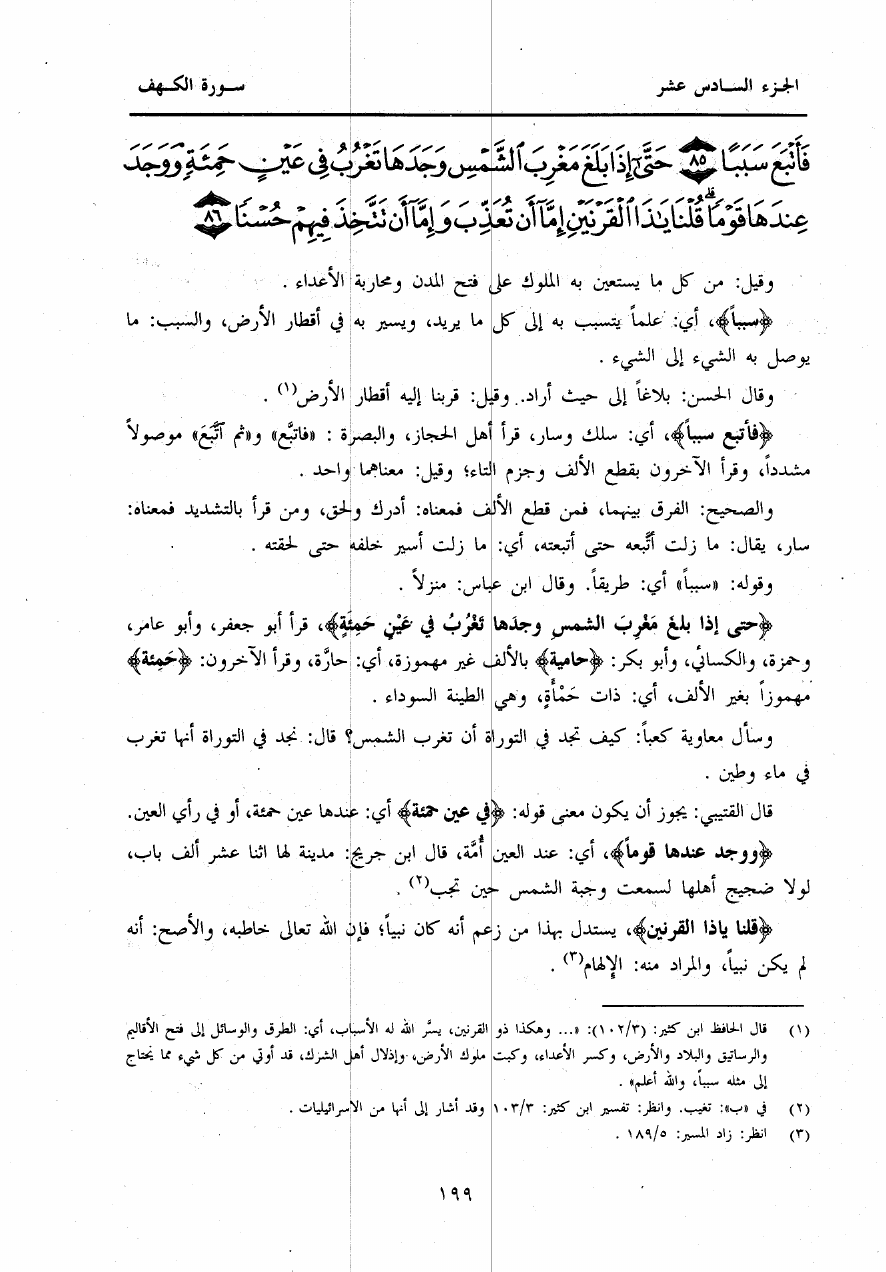 الجزء السادس عشر
سورة الكهف
فَأَتْبَعَ سَبَبًا ٨٥ حَتَّىٰٓ إِذَا بَلَغَ مَغْرِبَ ٱلشَّمْسِ وَجَدَهَا تَغْرُبُ فِى عَيْنٍ حَمِئَةٍ وَوَجَدَ
عِندَهَا قَوْمًا ۗ قُلْنَا يَٰذَا ٱلْقَرْنَيْنِ إِمَّآ أَن تُعَذِّبَ وَإِمَّآ أَن تَتَّخِذَ فِيهِمْ حُسْنًا ٨٦
وقيل: من كل ما يستعين به الملوك على فتح المدن ومحاربة الأعداء .
﴿سبباً﴾، أي: علماً يتسبب به إلى كل ما يريد، ويسير به في أقطار الأرض، والسبب: ما
يوصل به الشيء إلى الشيء .
وقال الحسن: بلاغاً إلى حيث أراد. وقيل: قربنا إليه أقطار الأرض(١) .
﴿فأتبع سبباً﴾، أي: سلك وسار، قرأ أهل الحجاز، والبصرة : «فاتَّبع» و«ثم اتَّبَعَ» موصولاً
مشدداً، وقرأ الآخرون بقطع الألف وجزم التاء؛ وقيل: معناهما واحد .
والصحيح: الفرق بينهما، فمن قطع الألف فمعناه: أدرك ولحق، ومن قرأ بالتشديد فمعناه:
سار، يقال: ما زلت أتَّبعه حتى أتبعته، أي: ما زلت أسير خلفه حتى لحقته .
وقوله: «سبباً» أي: طريقاً. وقال ابن عباس: منزلاً .
﴿حتى إذا بلغ مَغْرِبَ الشمسِ وجدَها تَغْرُبُ في عَيْنٍ حَمِئَةٍ﴾، قرأ أبو جعفر، وأبو عامر،
وحمزة، والكسائي، وأبو بكر: ﴿حامية﴾ بالألف غير مهموزة، أي: حارَّة، وقرأ الآخرون: ﴿حَمِئة﴾
مهموزاً بغير الألف، أي: ذات حَمْأَةٍ، وهي الطينة السوداء .
وسأل معاوية كعباً: كيف تجد في التوراة أن تغرب الشمس؟ قال: نجد في التوراة أنها تغرب
في ماء وطين .
قال القتيبي: يجوز أن يكون معنى قوله: ﴿في عين حمئة﴾ أي: عندها عين حمئة، أو في رأي العين.
﴿ووجد عندها قوماً﴾، أي: عند العين أُمَّة، قال ابن جريج: مدينة لها اثنا عشر ألف باب،
لولا ضجيج أهلها لسمعت وجبة الشمس حين تجب(٢) .
﴿قلنا ياذا القرنين﴾، يستدل بهذا من زعم أنه كان نبياً؛ فإن الله تعالى خاطبه، والأصح: أنه
لم يكن نبياً، والمراد منه: الإلهام(٣) .
(١) قال الحافظ ابن كثير: (١٠٢/٣): «... وهكذا ذو القرنين، يسَّر الله له الأسباب، أي: الطرق والوسائل إلى فتح الأقاليم
والرساتيق والبلاد والأرض، وكسر الأعداء، وكبت ملوك الأرض، وإذلال أهل الشرك، قد أوتي من كل شيء مما يحتاج
إلى مثله سبباً، والله أعلم» .
(٢) في «ب»: تغيب. وانظر: تفسير ابن كثير: ١٠٣/٣ وقد أشار إلى أنها من الاسرائيليات .
(٣) انظر: زاد المسير: ١٨٩/٥ .
١٩٩